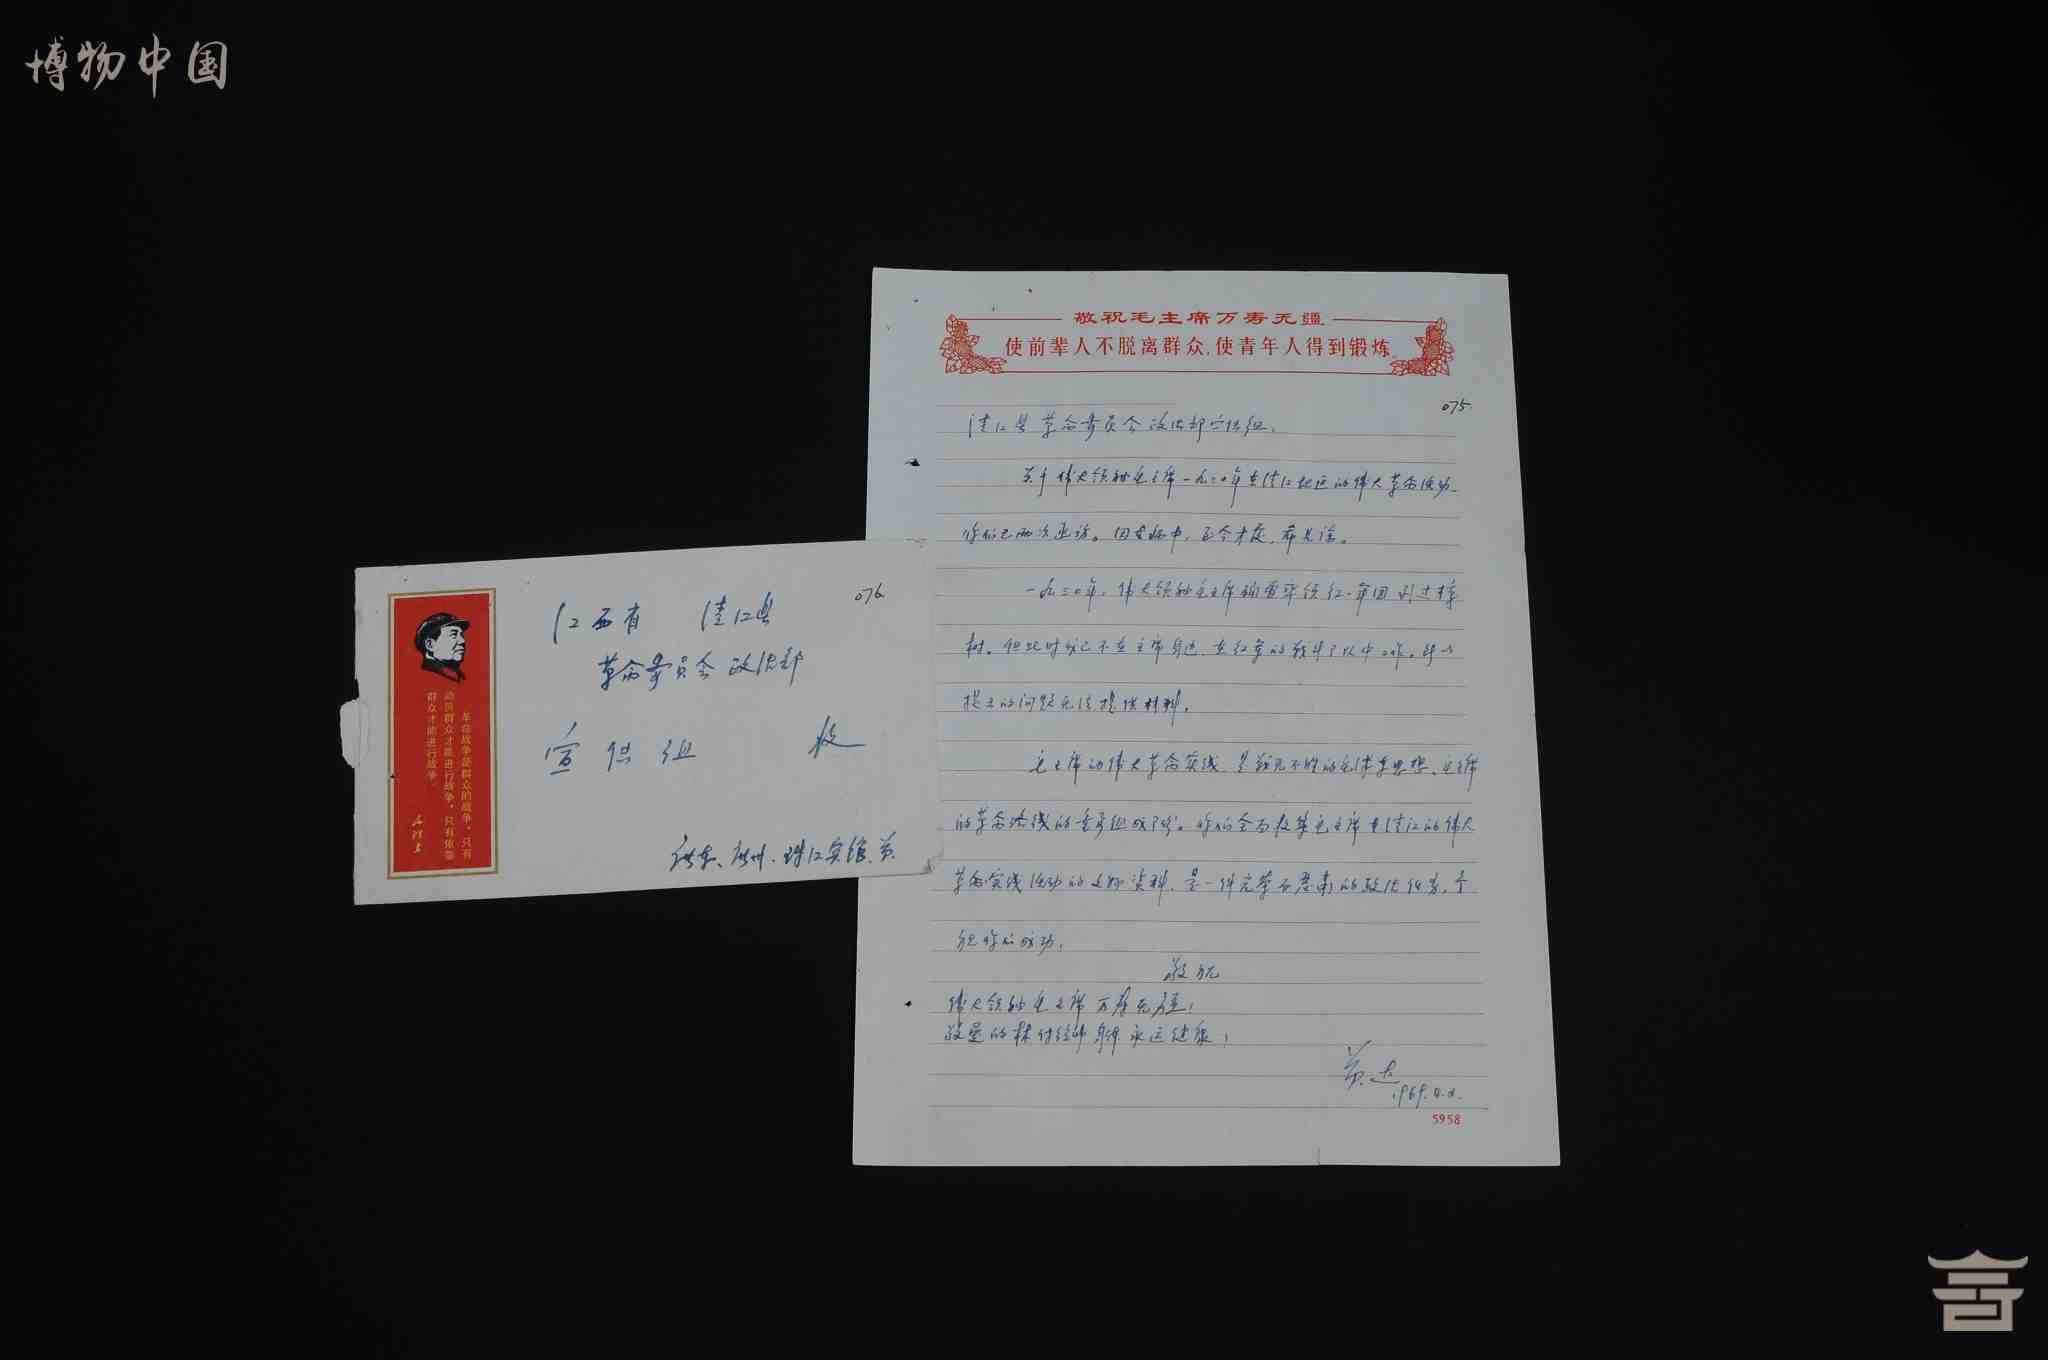 博物中国
敬祝毛主席万寿无疆
使前辈人不脱离群众,使青年人得到锻炼。
075.
清江县革命委员会政治部宣传组:
关于伟大领袖毛主席一九三〇年在清江地区的伟大革命活动,
你们已两次来访。因在病中,至今才复,希见谅。
一九三〇年,伟大领袖毛主席确曾率领红一军团到过樟
树。但此时我已不在主席身边,在红军的战斗部队中工作。所以
提出的问题无法提供材料。
毛主席的伟大革命实践,是战无不胜的毛泽东思想、毛主席
的革命路线的重要组成部分。你们全面收集毛主席在清江的伟大
革命实践活动的文物资料,是一件光荣而严肃的政治任务。予
祝你们成功!
敬祝
伟大领袖毛主席万寿无疆!
敬爱的林付统帅身体永远健康!
黄达
1969.4.
5958
076
江西省 清江县
革命委员会政治部
宣传组 收
广东、广州、珠江宾馆 黄
革命战争是群众的战争,只有
动员群众才能进行战争,只有依靠
群众才能进行战争。
毛泽东